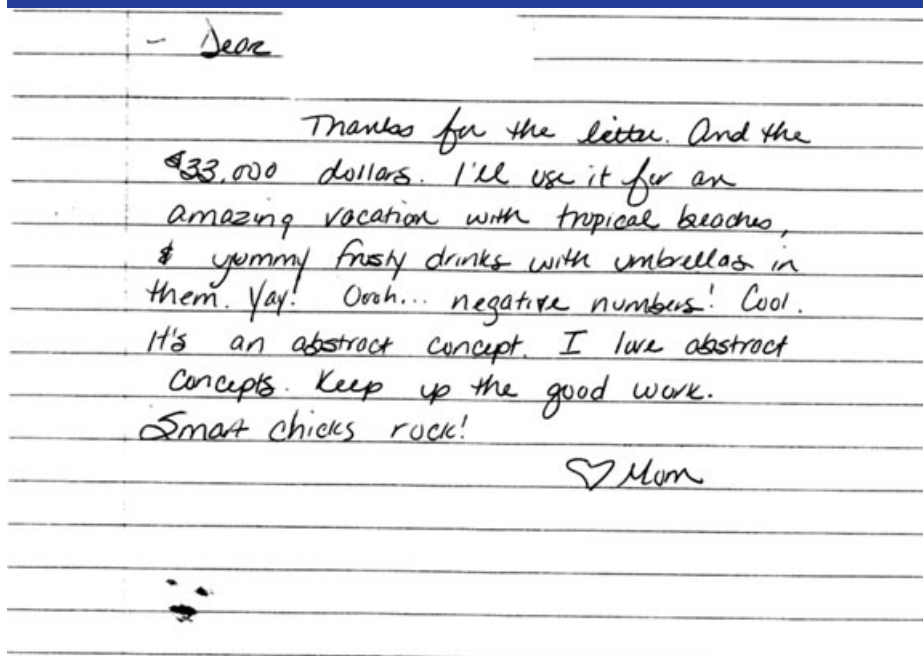 - Dear
Thanks for the letter. And the
$33,000 dollars. I'll use it for an
amazing vacation with tropical beaches,
& yummy frosty drinks with umbrellas in
them. Yay! Oooh... negative numbers! Cool.
It's an abstract concept. I love abstract
concepts. Keep up the good work.
Smart chicks rock!
♡ Mom